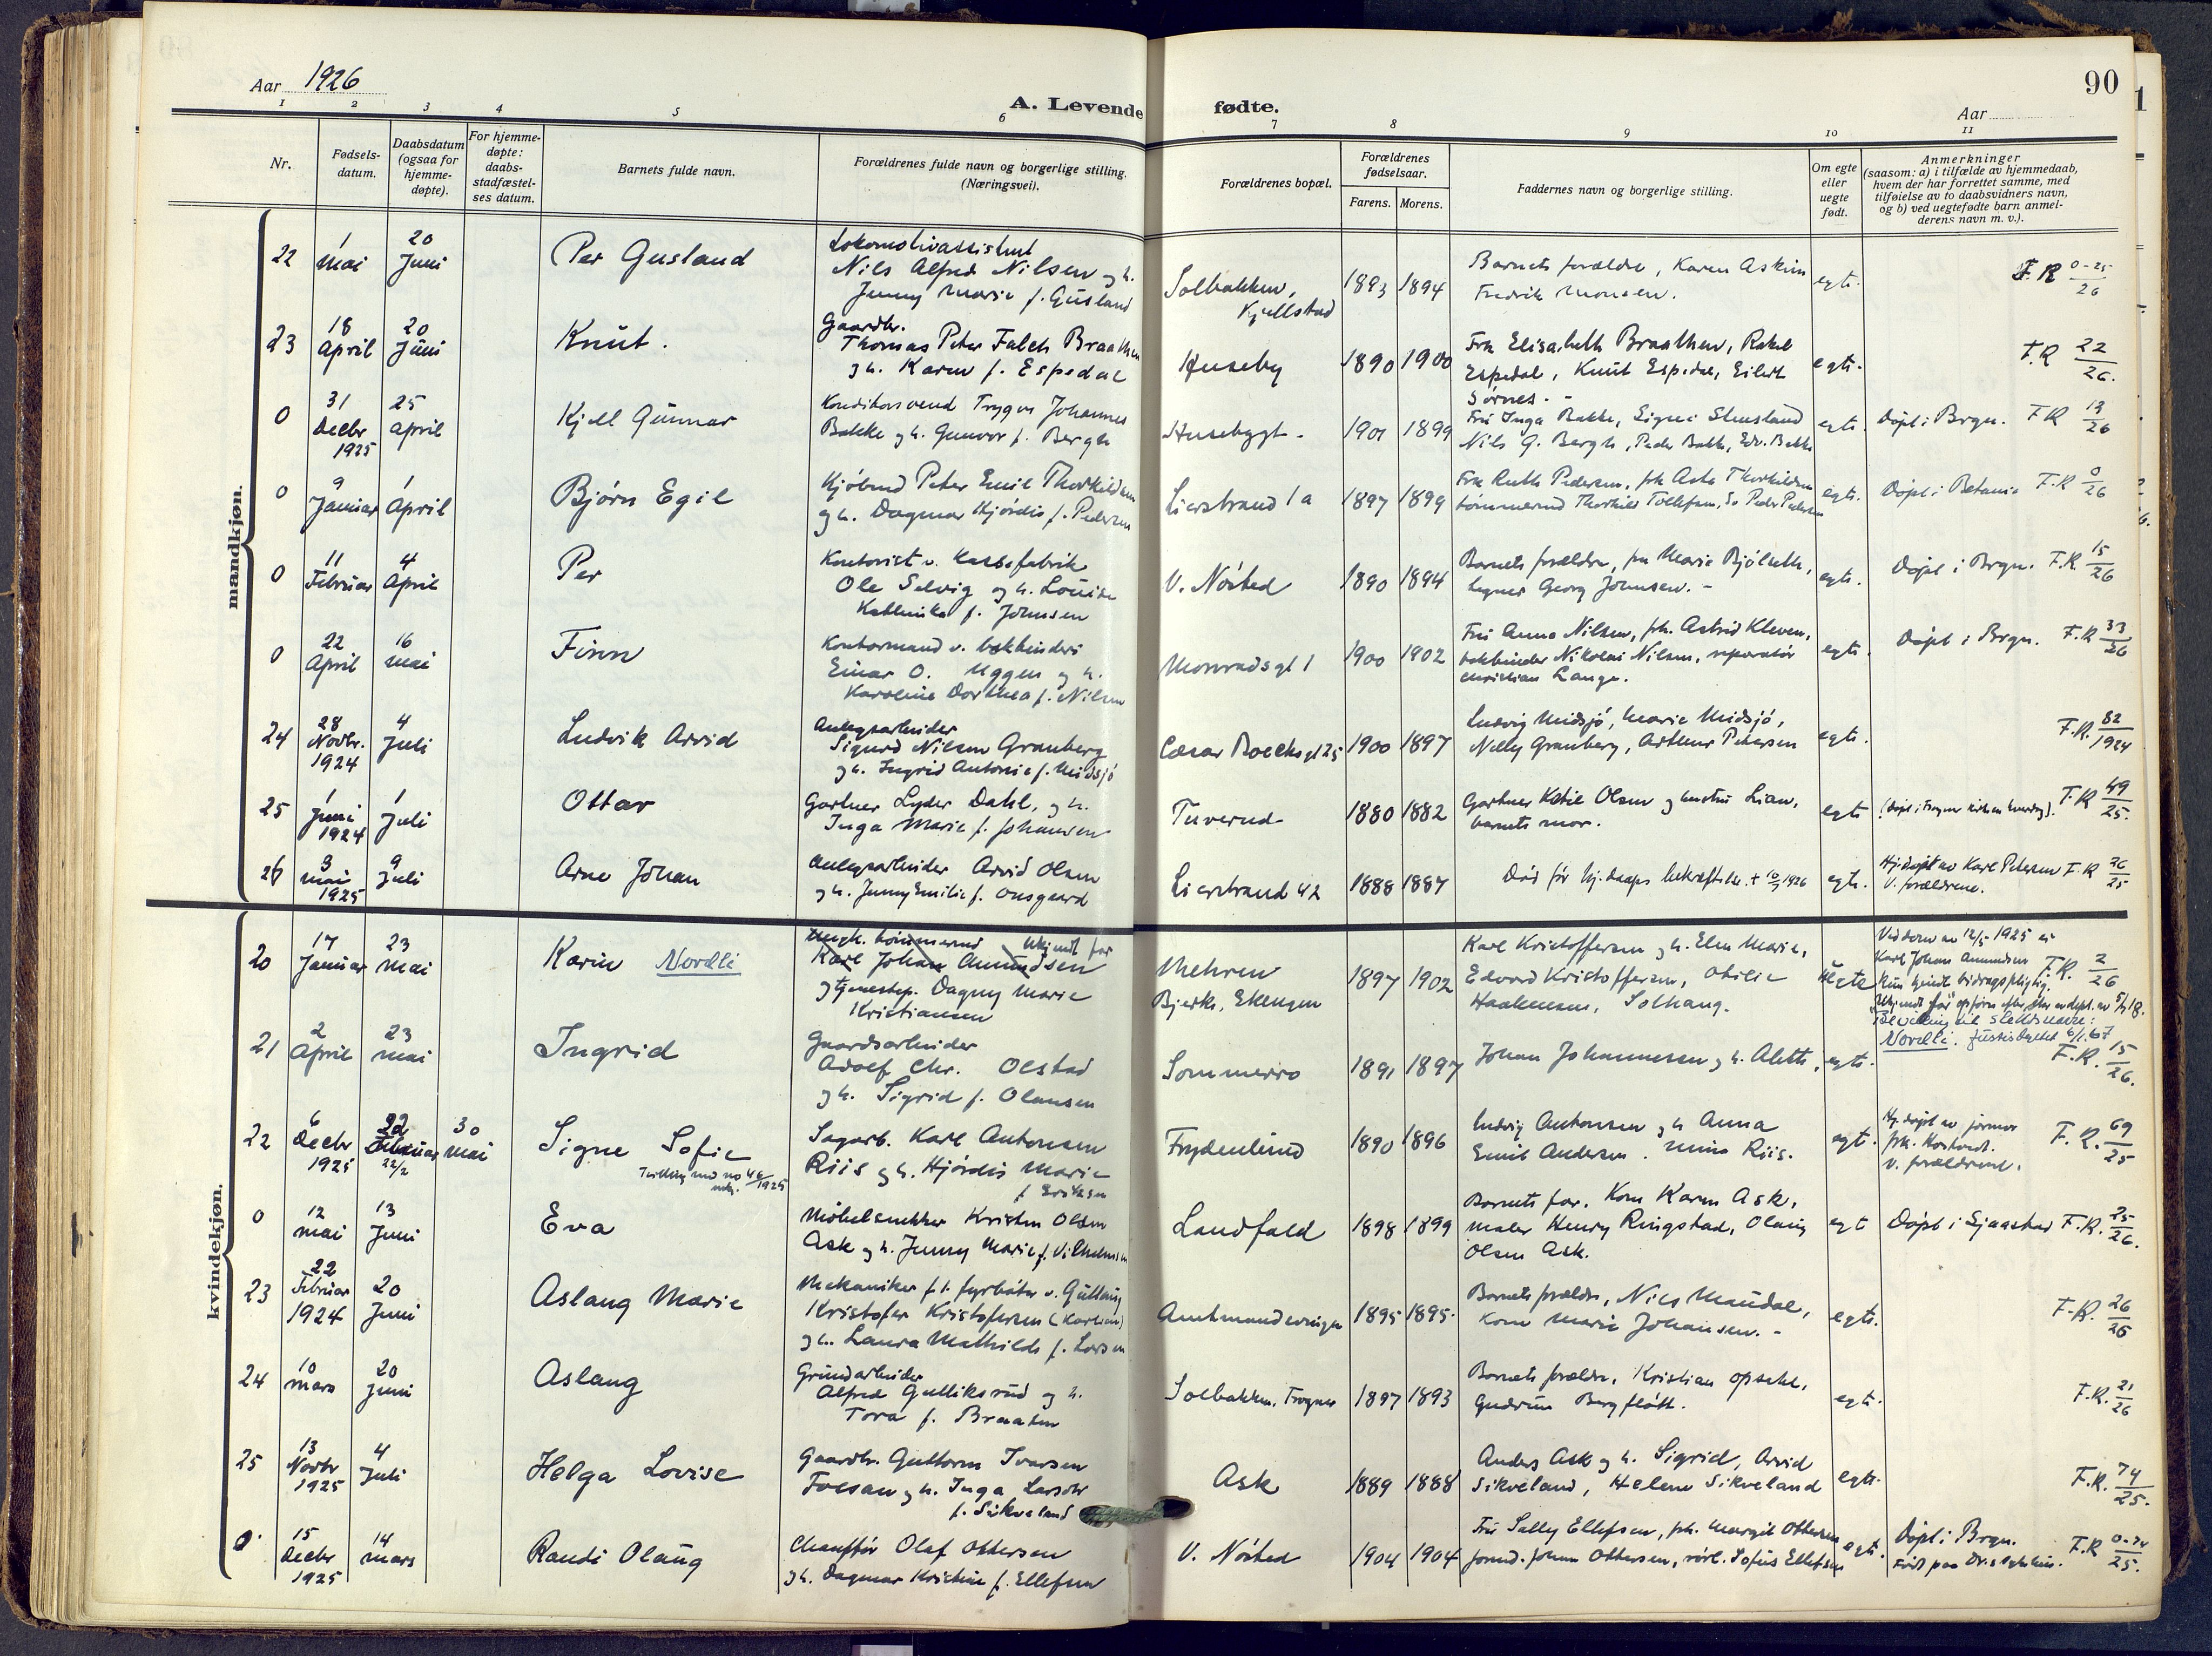 Aar 1926
A. Levende fødte.
Aar
90
1 2 3 4 5 6 7 8 9 10 11
Nr.
Fødsels-
datum.
Daabsdatum
(ogsaa for
hjemme-
døpte).
For hjemme-
døpte:
daabs-
stadfæstel-
ses datum.
Barnets fulde navn.
Forældrenes fulde navn og borgerlige stilling.
(Næringsvei).
Forældrenes bopæl.
Forældrenes
fødselsaar.
Farens. Morens.
Faddernes navn og borgerlige stilling.
Om egte
eller
uegte
født.
Anmerkninger
(saasom: a) i tilfælde av hjemmedaab,
hvem der har forrettet samme, med
tilføielse av to daabsvidners navn,
og b) ved uegtefødte barn anmel-
derens navn m. v.).
mandkjøn.
22
1
Mai
20
Juni
Per Gusland
Lokomotivassistent
Nils Alfred Nilsen og h.
Jenny Marie f. Gusland
Solbakken,
Kjellstad
1893 1894
Barnets forældre, Karen Askim
Fredrik Monsen.
egte.
F.R 0-25/26
23
18
April
20
Juni
Knut.
Gaardbr.
Thomas Peter Falch Braathen
og h. Karen f. Espedal
Huseby
1890 1900
Frk Elisabeth Braathen, Rakel
Espedal, Knut Espedal, Eilert
Sørnes.
egte.
F.R 22/26.
0
31
Decbr
1925
25
April
Kjell Gunnar
Konditorsvend Trygve Johannes
Bakke og h. Gunvor f. Bergh
Husebygt.
1901 1899
Fru Inga Bakke, Signe Stensland
Nils G. Bergh, Peder Bakke, Edv. Bakke
egte.
Døpt i Brgn. F.R 13/26
0
9
Januar
1
April
Bjørn Egil
Kjøbmd Peter Emil Thorkildsen
og h. Dagmar Hjørdis f. Pedersen
Lierstrand 1a
1897 1899
Frk Ruth Pedersen, frk Asta Thorkildsen
tømmermd Thorkild Tollefsen, Peder Pedersen
egte.
Døpt i Betania F.R 0/26
0
11
Februar
4
April
Per
Kontorist v. kassefabrik
Ole Selvig og h. Louise
Kathinka f. Johnsen
V. Nøsted
1890 1894
Barnets forældre, fru Marie Bjølseth,
Georg Johnsen.
egte.
Døpt i Brgn. F.R 15/26
0
22
April
16
Mai
Finn
Kontormand v. bokbinderi
Einar O. Uggen og h.
Karoline Dorthea f. Nilsen
Monradsgt 1
1900 1902
Fru Anna Nilsen, frk. Astrid Kleven,
bokbinder Nikolai Nilsen, reparatør
Christian Lange.
egte.
Døpt i Brgn. F.R 33/26
24
28
Novbr.
1924
4
Juli
Ludvik Arvid
Anlegsarbeider
Sigurd Nilsen Granberg
og h. Ingrid Antonie f. Midsjø
Cæsar Boecksgt 25
1900 1897
Ludvig Midsjø, Marie Midsjø,
Nelly Granberg, Arthur Petersen
egte.
F.R. 82/1924
25
1
Juni
1924
1
Juli
Ottar
Gartner Lyder Dahl, og h.
Inga Marie f. Johansen
Tuverud
1880 1882
Gartner Ketil Olsen og hustru Lian,
barnets mor.
egte
(Døpt i Frogner kirke en hverdag). F.R 49/25.
26
3
mai
1925
9
Juli
Arne Johan
Anlegsarbeider Arvid Olsen
og h. Jenny Emilie f. Onsgaard
Lierstrand 42
1888 1887
Død før hj.daaps bekræftelse. + 10/7 1926
egte.
Hj.døpt av Karl Petersen F.R 26/25
V. forældrene.
kvindekjøn.
20
17
Januar
23
Mai
Karin Nordli
Ungk. tømmermd Ukjendt far
Karl Johan Amundsen
og tjenestep. Dagny Marie
Kristiansen
Mehren
Bjerke, Ekengen
1897 1902
Karl Kristoffersen og h. Elen Marie,
Edvard Kristoffersen, Otilie
Haakensen, Solhaug.
Uegte
Ved dom av 12/5 1925 er
Karl Johan Amundsen
kun kjendt bidragspligtig. F.R. 2/26
"Ukjendt far" opført efter skr. av dept. av 5/7 18.
Bevilling til slektsnavn:
Nordli. Justisdeptet 6/1.67
21
2
April
23
mai
Ingrid
Gaardsarbeider
Adolf Chr. Olstad
og h. Sigrid f. Olausen
Sommerro
1891 1897
Johan Johannesen og h. Alette,
egte.
F.R. 15/26.
22
6
Decbr
1925
22
Februar
22/2
30
Mai
Signe Sofie
Tvilling med no 46/1925
Sagarb. Karl Antonsen
Riis og h. Hjørdis Marie
f. Eriksen
Frydenlund
1890 1896
Ludvig Antonsen og h Anna
Emil Andersen. Mina Riis.
egt.
Hj.døpt av jormor
frk. Korsvedt.
v. forældrene.
F.R. 69/25
0
12
Mai
13
Juni
Eva
Møbelsnekker Kristen Olsen
Ask og h. Jenny Marie f. Vilhelmsen
Landfald
1898 1899
Barnets far. Kone Karen Ask,
maler Henry Ringstad, Olaug
Olsen Ask.
egt
Døpt i Sjaastad F.R. 25/26.
23
22
Februar
1924
20
Juni
Aslaug Marie
Mekaniker f.t. fyrbøter v. Gullaug
Kristofer Kristofersen (Karlsen)
og h. Laura Mathilde f. Larsen
Amtmandsvingen
1895 1895.
Barnets forældre, Nils Maudal,
Kone Marie Johansen.
egte.
F.R. 26/26
24
10
mars
20
Juni
Aslaug
Grundarbeider
Alfred Gulliksrud og h.
Tora f. Braaten
Solbakken, Frogner
1897 1893
Barnets forældre, Kristian Opsahl,
Gudrun Bergfløtt.
egte.
F.R. 21/26
25
13
Novbr
1925
4
Juli
Helga Lovise
Gaardbr. Guttorm Ivarsen
Fossan og h. Inga Larsdtr
f. Sikveland
Ask
1889 1888
Anders Ask og h. Sigrid, Arvid
Sikveland, Helene Sikveland
egte.
F.R. 74/25.
0
15
Decbr
1925
14
mars
Randi Olaug
Chauffør Olaf Ottersen
og h. Dagmar Kristine f. Ellefsen
V. Nøsted
1904 1904
Fru Sally Ellefsen, frk. Margit Ottersen
formd. Johan Ottersen, rørl. Sofus Ellefsen
egt.
Døpt i Brgn.
Født paa Dr. sykehus. F.R 0-74/25.